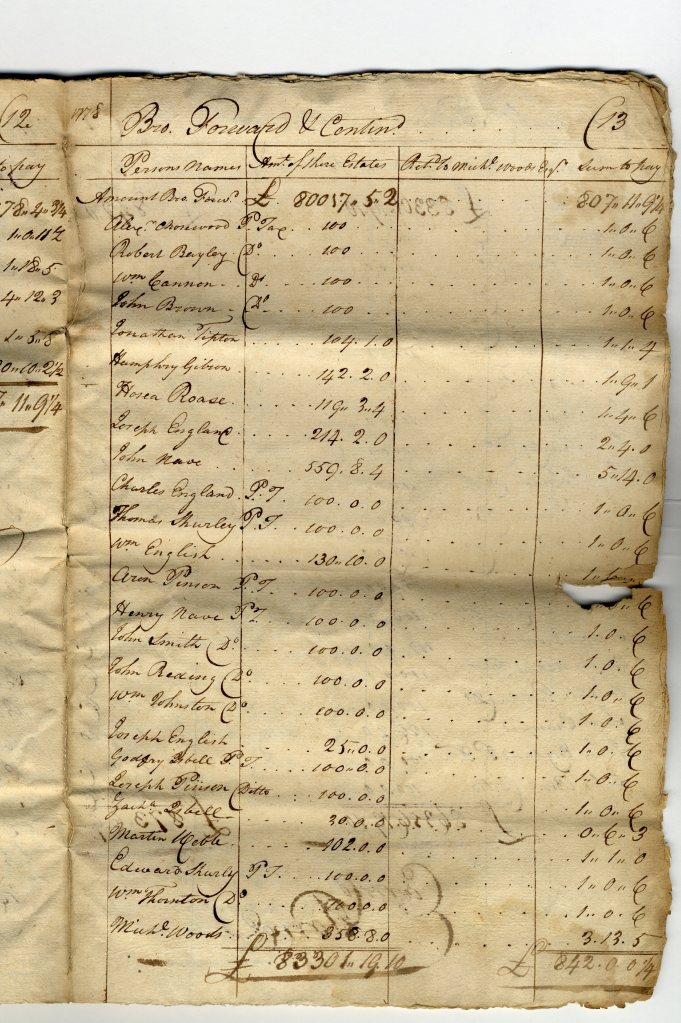 (12
to pay
78.4.3/4
1.0.11 1/2
1.18.5
4.12.3
1.3.8
20.10.2 1/2
7.11.9 1/4
1778 Bro. Forward & Contind. (13
Persons Names Amt. of there Estates Retd. to Michl. Woods Esqr. Sum to pay
Amount Bro. Forwd. £ 80017.5.2 807.11.9 1/4
Alexr. P Tax 100 1.0.6
Robert Bayley (Do 100 1.0.6
Wm Cannon Do 100 1.0.6
John Brown (Do 100 1.0.6
Jonathan Tipton 104.1.0 1.1.4
Humphry Gibson 142.2.0 1.9.1
Hosea Roase 119.3.4 1.4.6
Joseph England 214.2.0 2.4.0
John Nave 559.8.4 5.14.0
Charles England P.T. 100.0.0 1.0.6
Thomas Shurley P.T. 100.0.0 1.0.6
Wm English 130.10.0
Aron Pinson P.T. 100.0.0 0.6
Henry Nave P.T. 100.0.0 1.0.6
John Smith (Do 100.0.0 1.0.6
John Reding (Do 100.0.0 1.0.6
Wm Johnston (Do 100.0.0 1.0.6
Joseph English 25.0.0 1.0.6
Godfry Isbell P.T. 100.0.0 1.0.6
Joseph Pinson (Ditto 100.0.0 1.0.6
Zacha Isbell 30.0.0 0.6.3
Martin Webb 102.0.0 1.1.0
Edward Shurly P.T. 100.0.0 1.0.6
Wm Thornton (Do 100.0.0 1.0.6
Michl. Woods 358.8.0 3.13.5
£ 83301.19.10 £ 842.0.0 1/4